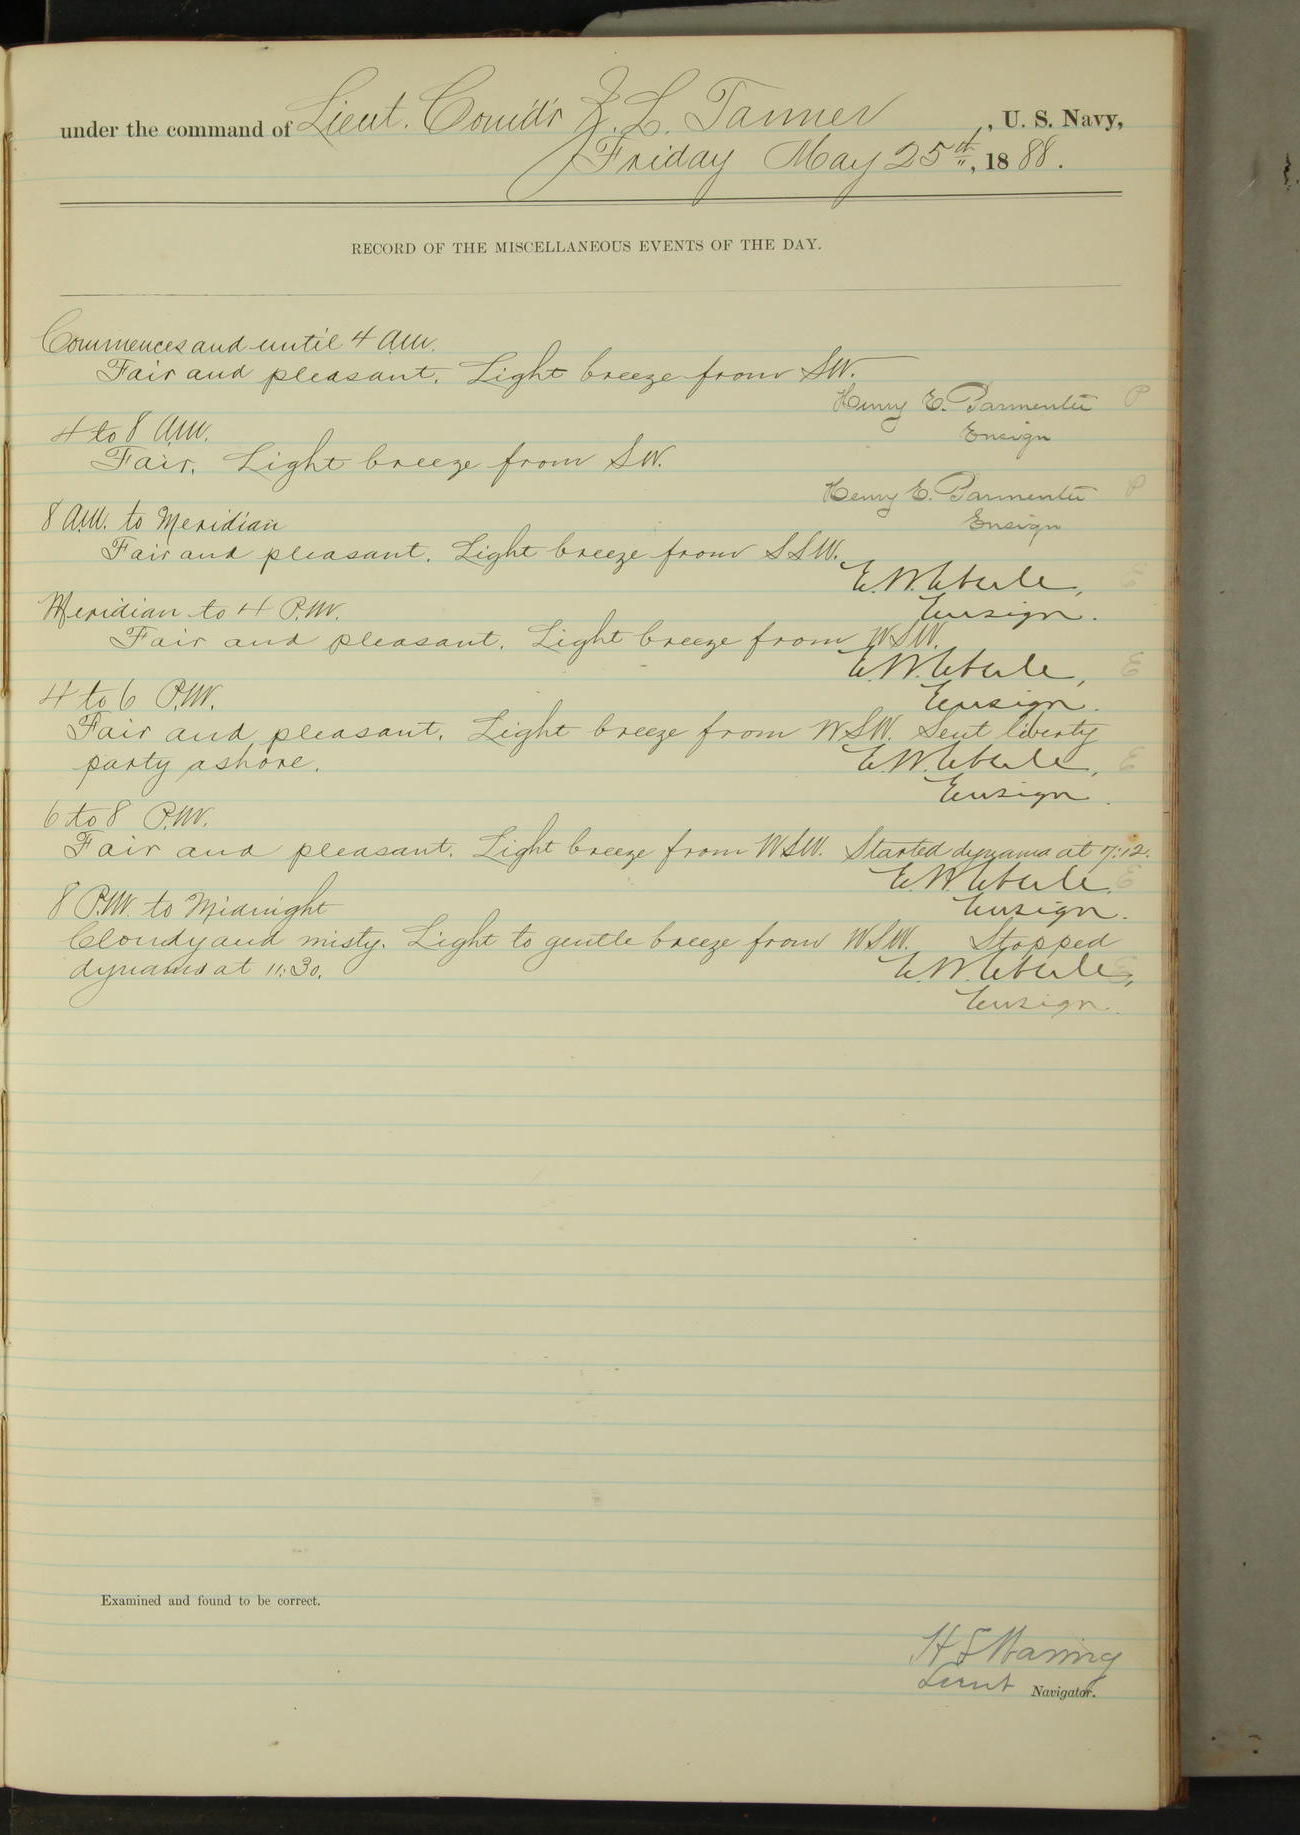 under the command of Lieut. Comd'r Z. L. Tanner, U. S. Navy,
Friday May 25th, 1888.
RECORD OF THE MISCELLANEOUS EVENTS OF THE DAY.
Commences and until 4 A.M.
Fair and pleasant. Light breeze from SW.
Henry E. Parmenter P
Ensign
4 to 8 A.M.
Fair. Light breeze from SW.
Henry E. Parmenter P
Ensign
8 A.M. to Meridian
Fair and pleasant. Light breeze from SSW.
E. W. Eberle,
Ensign.
Meridian to 4 P.M.
Fair and pleasant. Light breeze from WSW.
E. W. Eberle, E
Ensign.
4 to 6 P.M.
Fair and pleasant. Light breeze from WSW. Sent liberty
party ashore.
E. W. Eberle, E
Ensign.
6 to 8 P.M.
Fair and pleasant. Light breeze from WSW. Started dynamo at 7:12.
E. W. Eberle, E
Ensign.
8 P.M. to Midnight
Cloudy and misty. Light to gentle breeze from WSW. Stopped
dynamo at 11:30.
E. W. Eberle,
Ensign.
Examined and found to be correct.
H S Waring
Lieut Navigator.